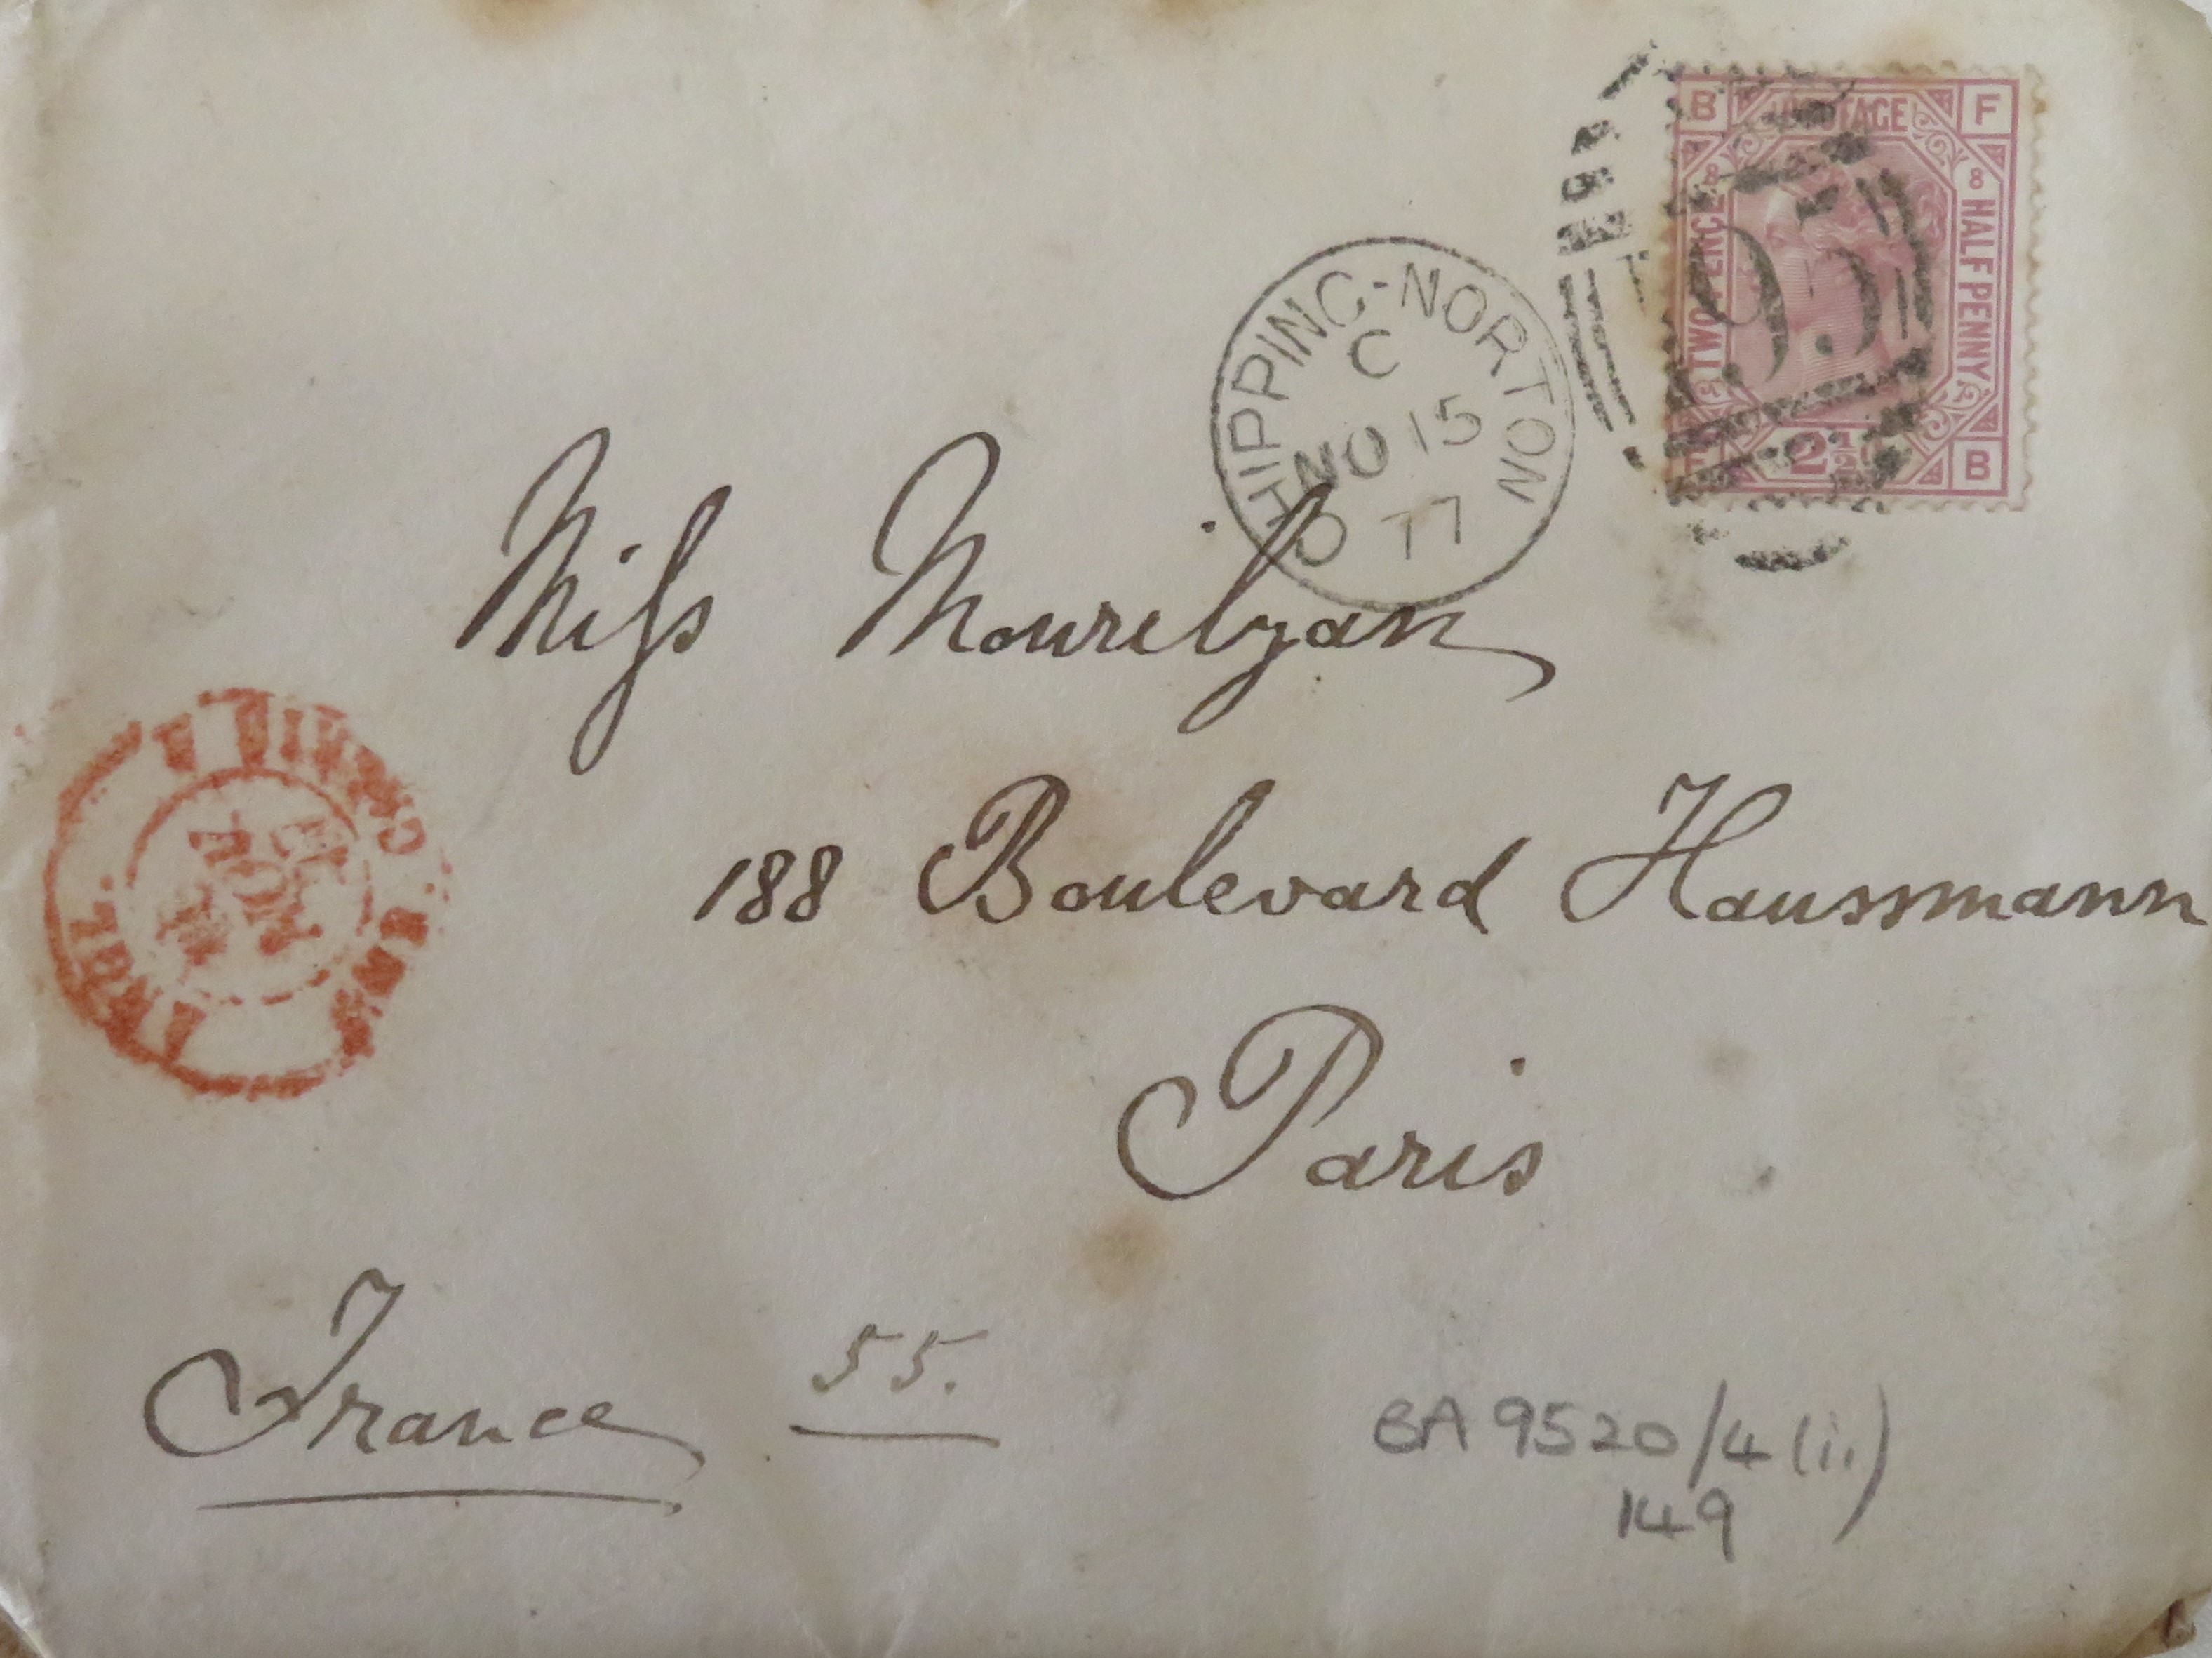 B POSTAGE F
8 8
TWO PENCE
HALF PENNY
2½
B
CHIPPING-NORTON
C
NO 15
77
Miss Mourilyan
188 Boulevard Haussmann
Paris
France
55.
ANGL.
CALAIS
NOV
77
BA 9520/4 (ii)
149